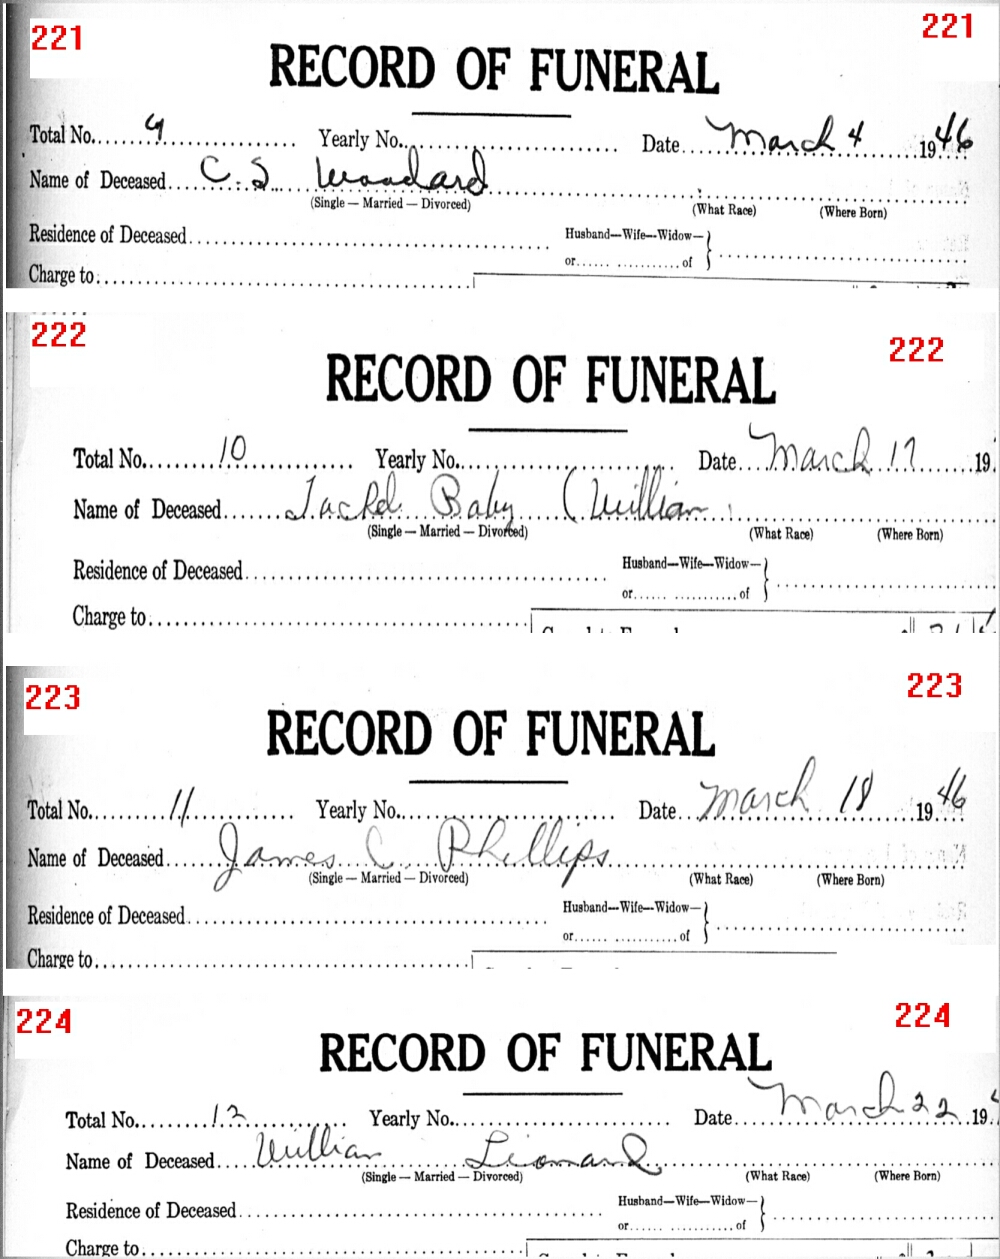 221 221
RECORD OF FUNERAL
Total No. 9 Yearly No. Date March 4 1946
Name of Deceased C. S. Woodard
(Single — Married — Divorced) (What Race) (Where Born)
Residence of Deceased Husband—Wife—Widow—
or of
Charge to
222 222
RECORD OF FUNERAL
Total No. 10 Yearly No. Date March 17 19
Name of Deceased Jackel Baby (William
(Single — Married — Divorced) (What Race) (Where Born)
Residence of Deceased Husband—Wife—Widow—
or of
Charge to
223 223
RECORD OF FUNERAL
Total No. 11 Yearly No. Date March 18 1946
Name of Deceased James C. Phillips
(Single — Married — Divorced) (What Race) (Where Born)
Residence of Deceased Husband—Wife—Widow—
or of
Charge to
224 224
RECORD OF FUNERAL
Total No. 12 Yearly No. Date March 22 19
Name of Deceased William Leonard
(Single — Married — Divorced) (What Race) (Where Born)
Residence of Deceased Husband—Wife—Widow—
or of
Charge to